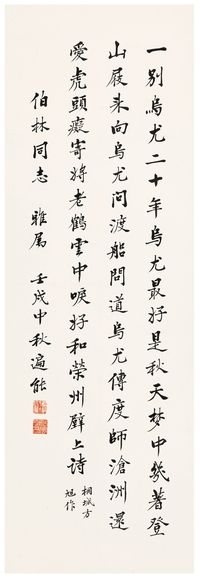 一別烏尤二十年烏尤最好是秋天夢中幾著登
山屐來向烏尤問渡船問道烏尤傳度師滄洲還
愛虎頭癡寄將老鶴雲中唳好和榮州壁上詩
桐城方
旭作
伯林同志 雅屬 壬戌中秋遍能